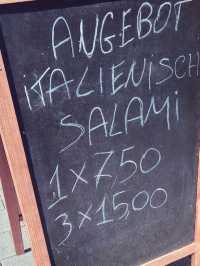 ANGEBOT
iTALiENiSCH
SALAMi
1×7,50
3×15,00